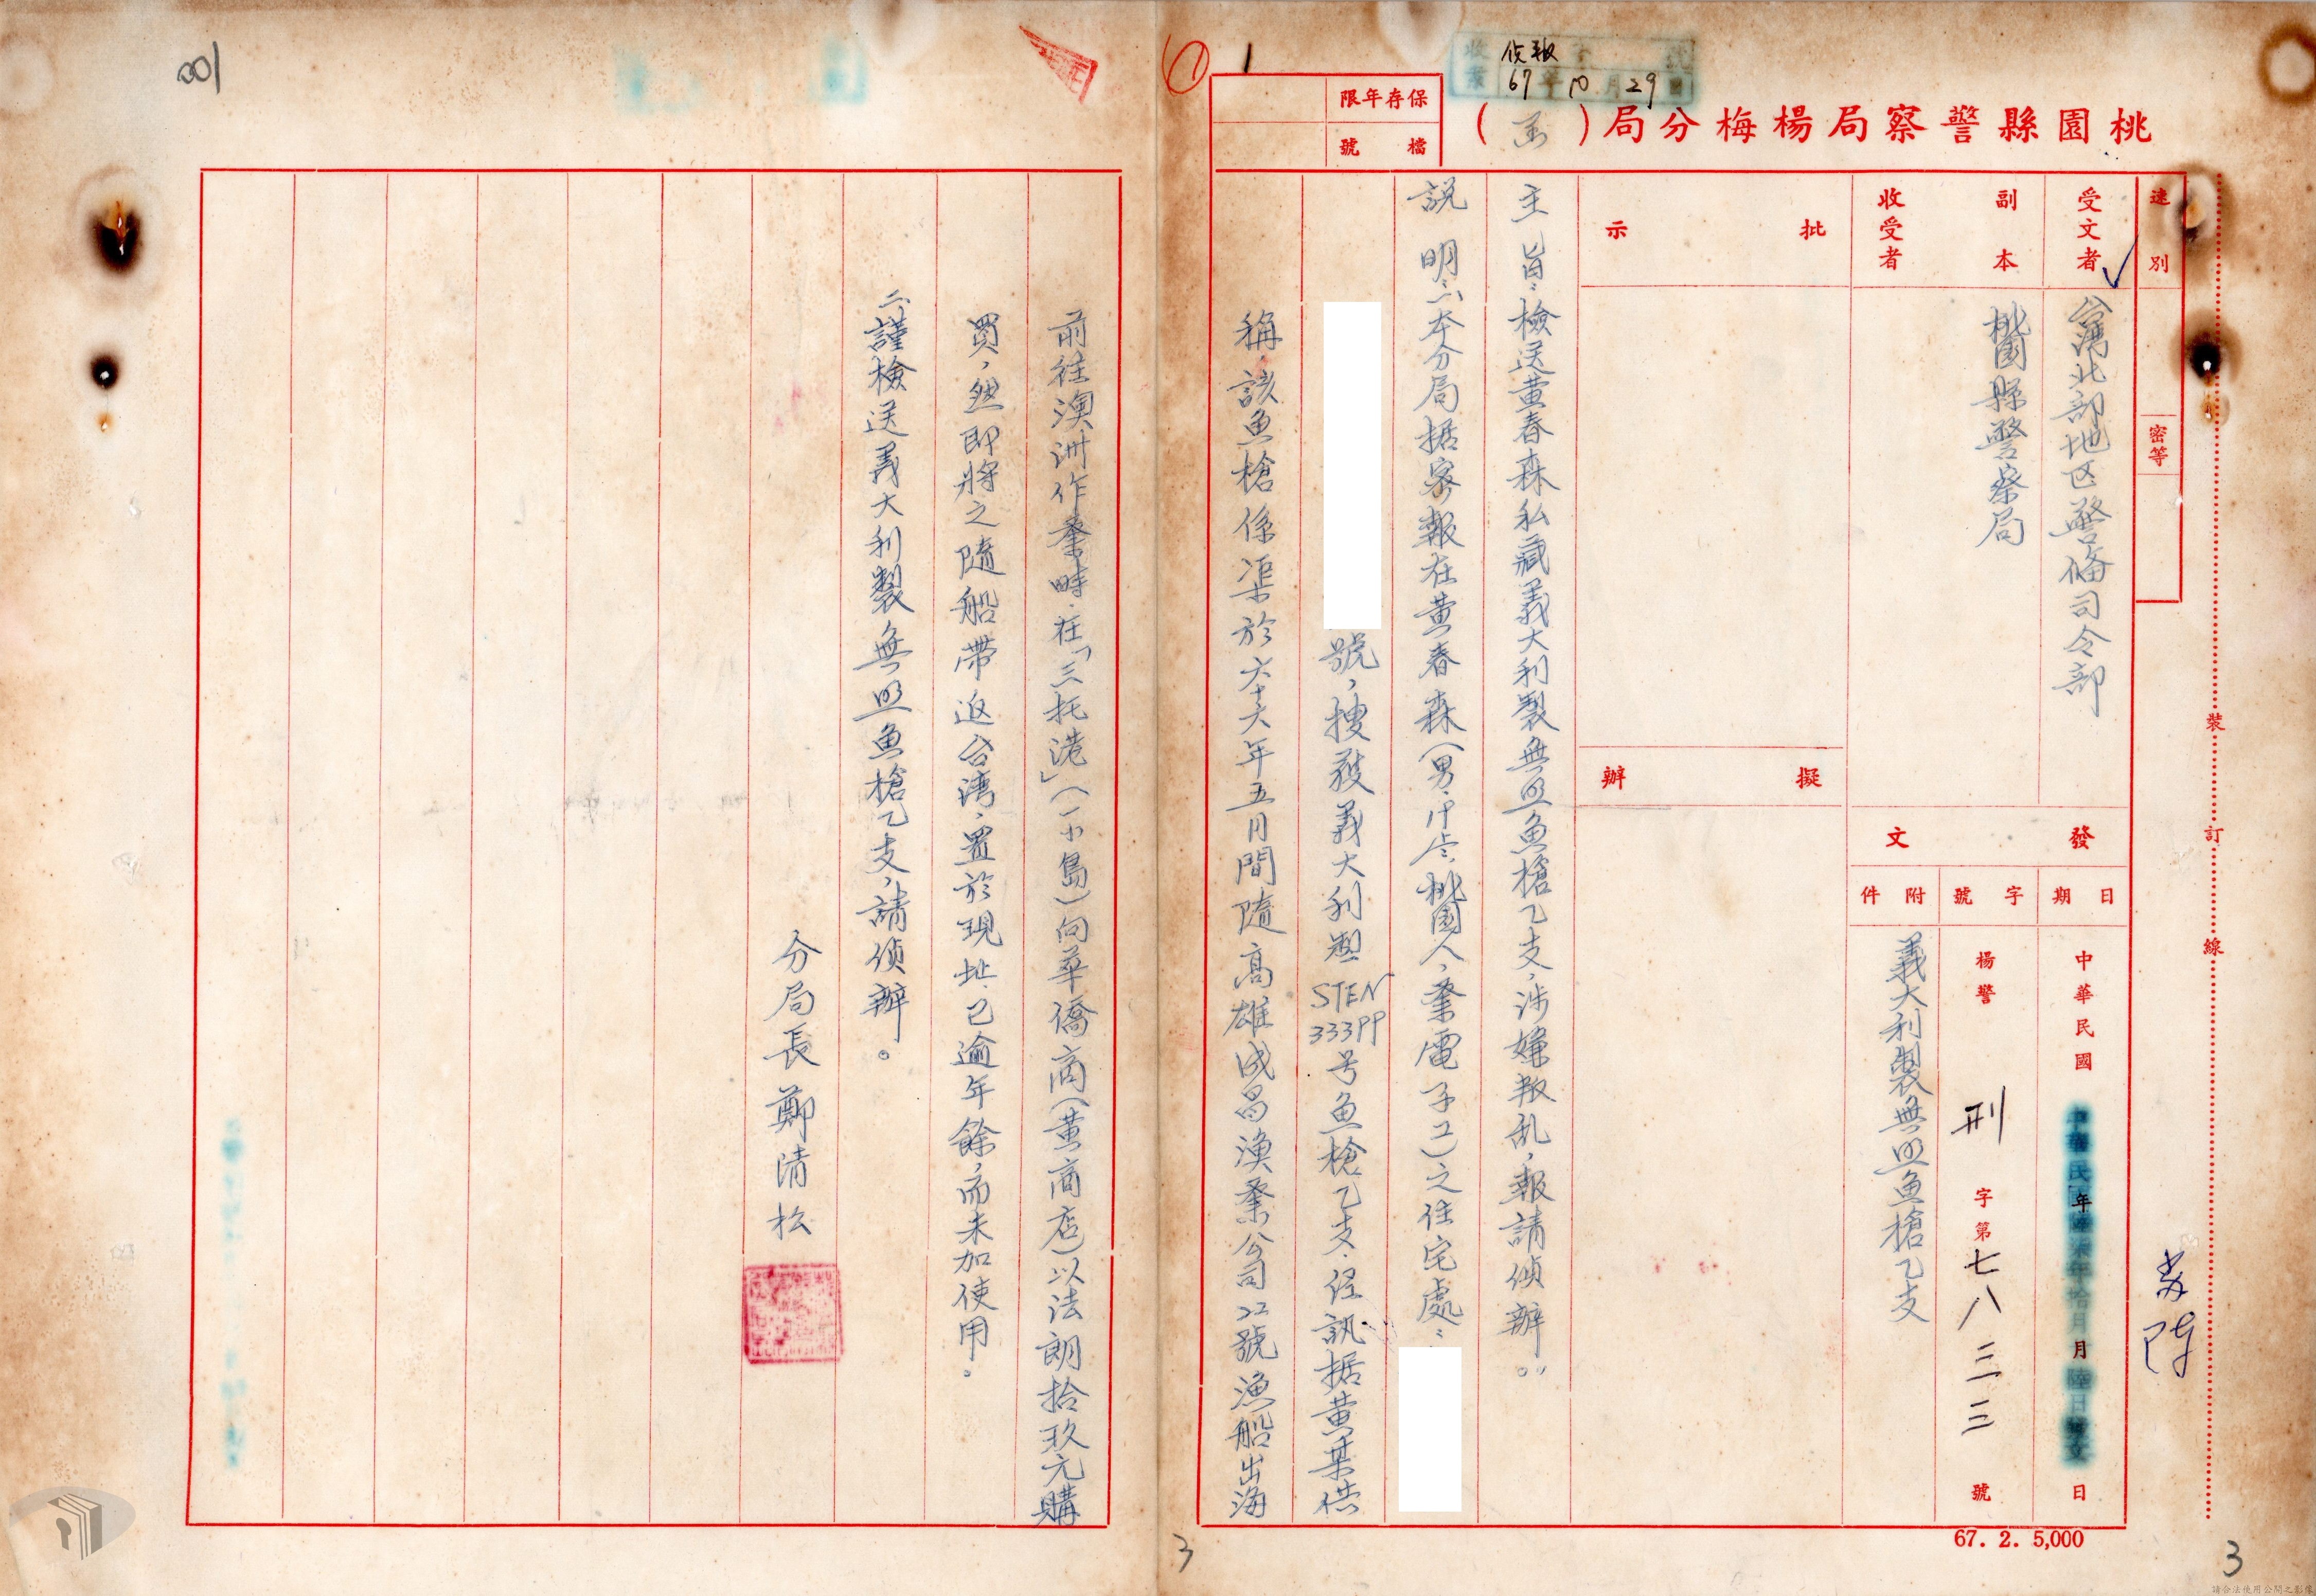 001
1
偵報
收
67年10月29日
保存年限
檔號
桃園縣警察局楊梅分局(函)
速別
密等
受文者
台灣北部地区警備司令部
副本收受者
桃園縣警察局
批示
擬辦
發文
日期
字號
附件
中華民國
年
月
日
楊警刑字第七八三三號
義大利製無照魚槍乙支
主旨:檢送黃春森私藏義大利製無照魚槍乙支,涉嫌叛乱,報請偵辦。
說明:一、本分局据密報在黃春森(男,桃園人,業電子工)之住宅處:
號,搜獲義大利製STEN 333PP号魚槍乙支,经訊据黃某供
稱該魚槍係渠於六十六年五月間隨高雄成昌漁業公司22號漁船出海
前往澳洲作業時,在「三托港」(一小島)向華僑商(黃商店)以法朗拾玖元購
買,然即將之隨船帶返台湾,置於現址,已逾年餘,而未加使用。
二、謹檢送義大利製無照魚槍乙支,請偵辦。
分局長鄭清松
裝
訂
線
67. 2. 5,000
3
3
請合法使用公開之影像